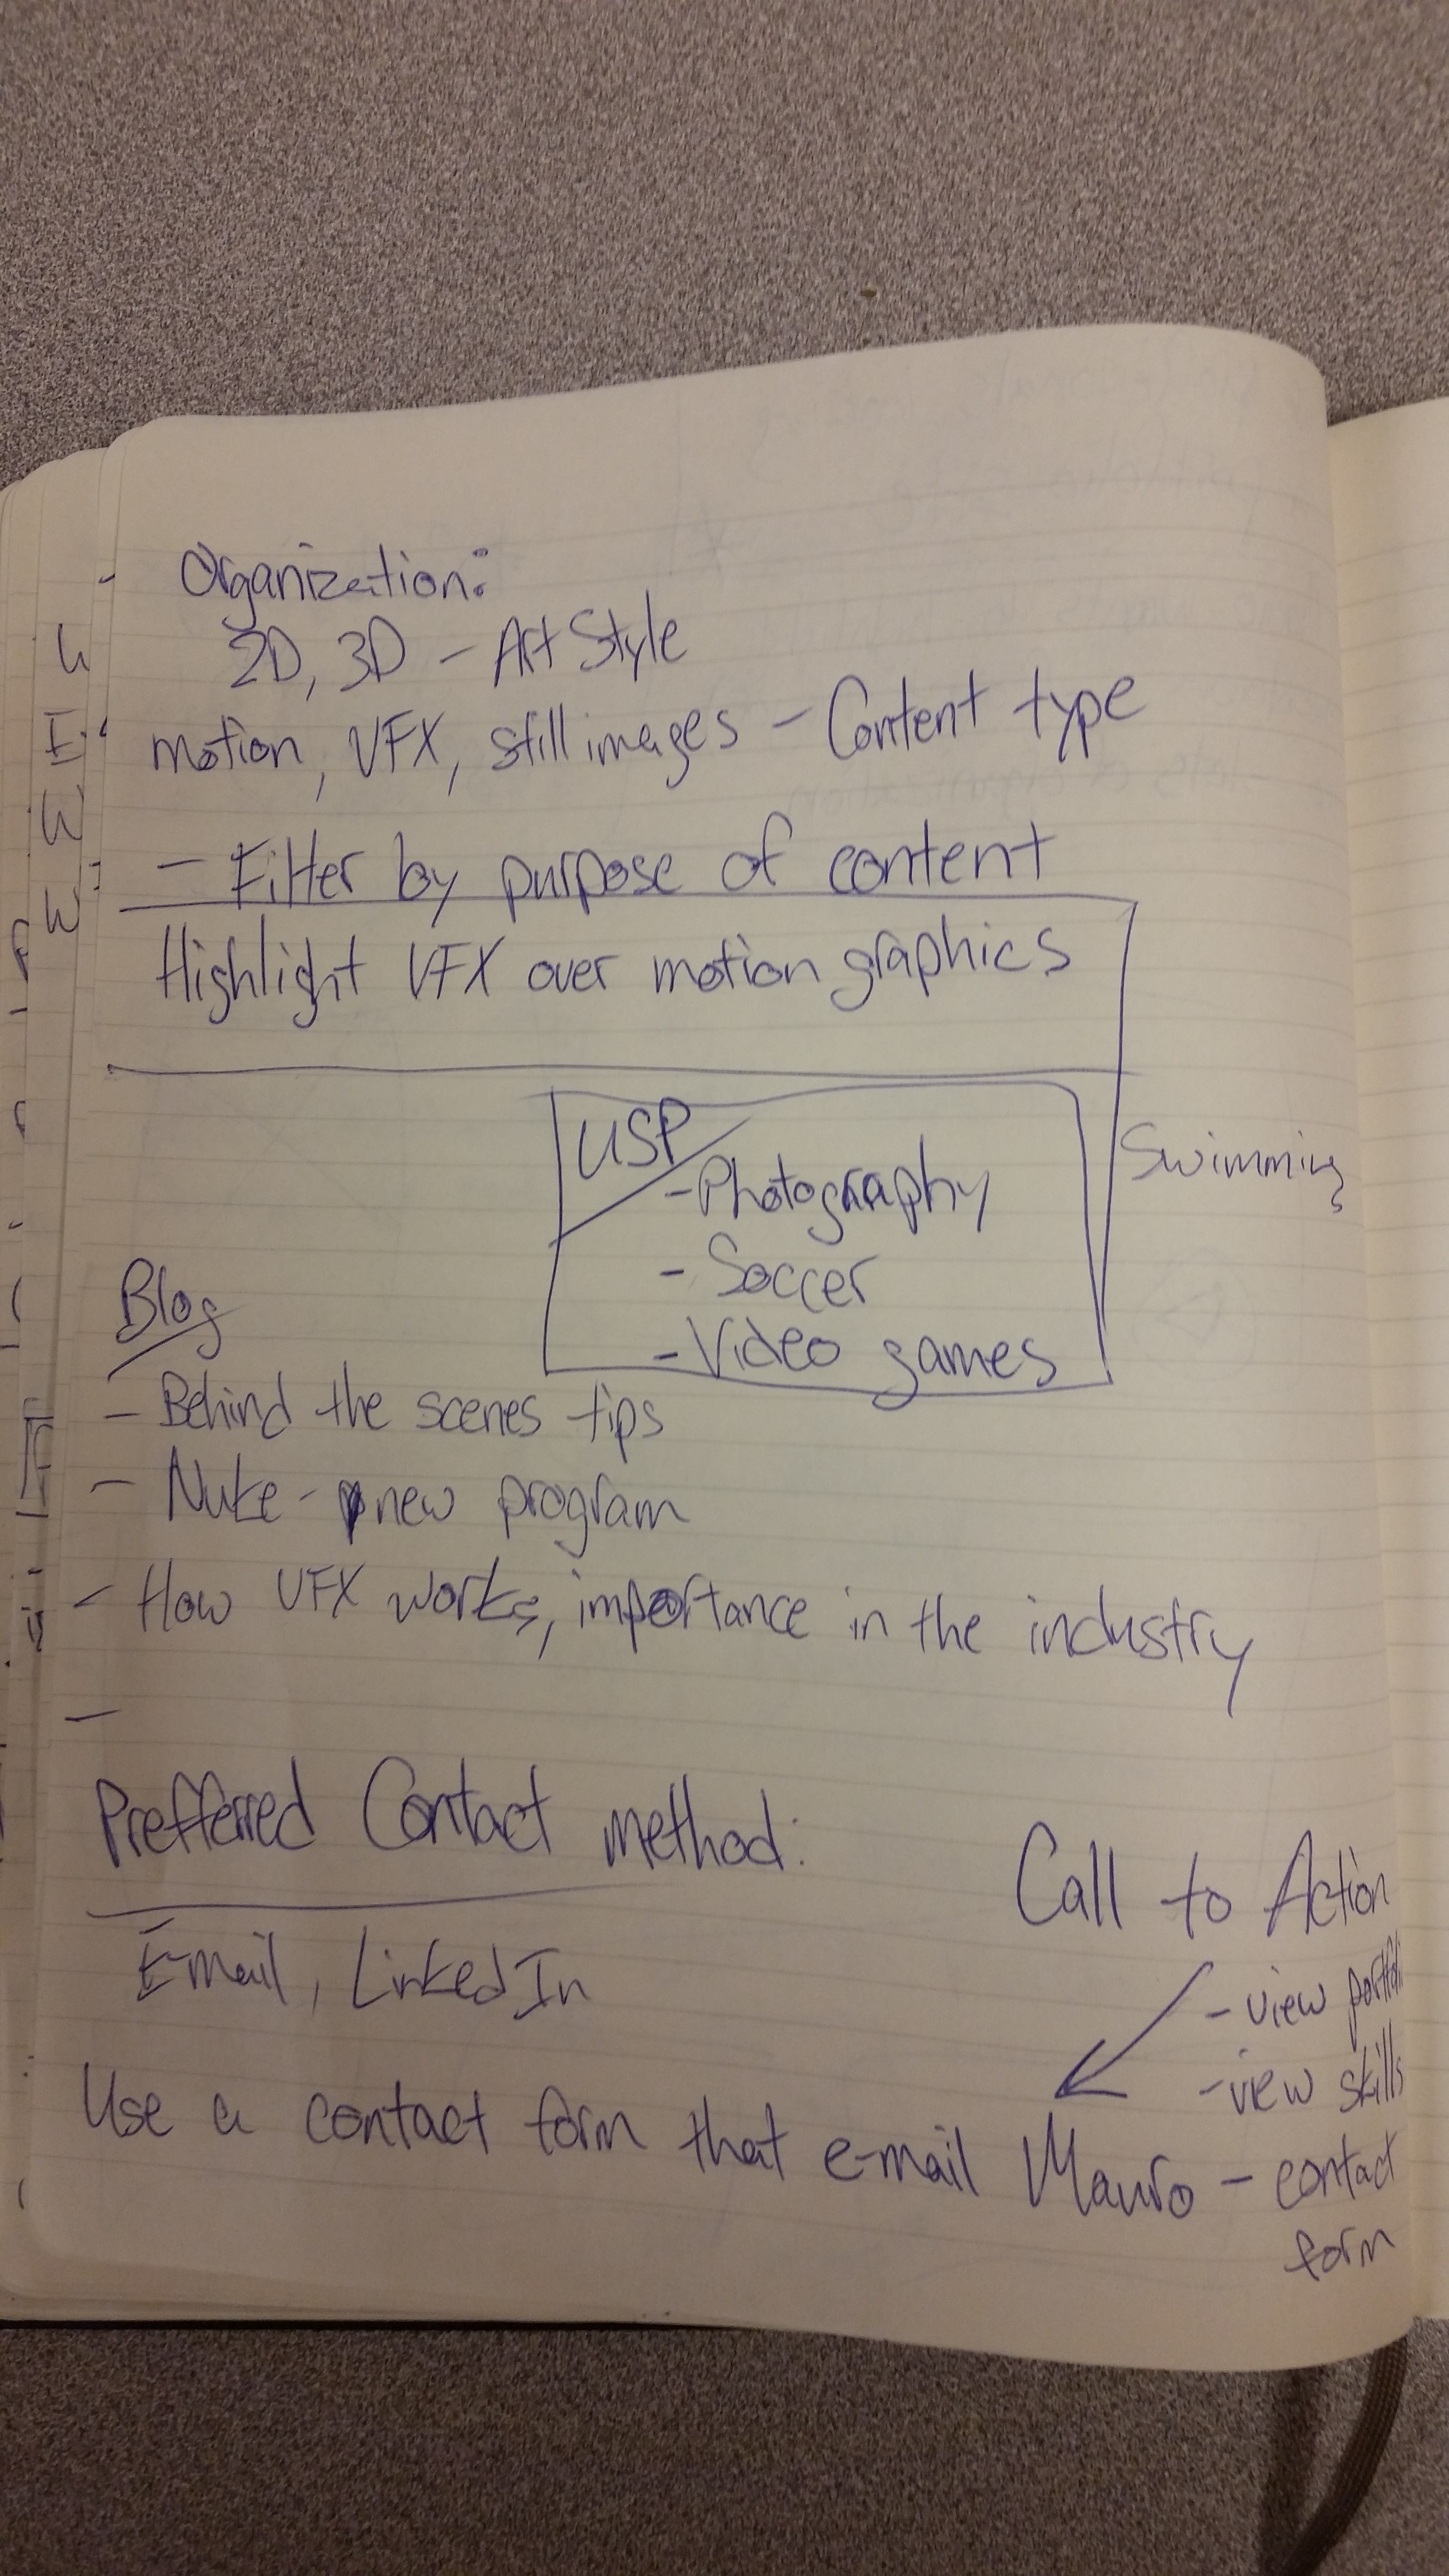 Organization:
2D, 3D - Art Style
motion, VFX, still images - Content type
- Filter by purpose of content
Highlight VFX over motion graphics
USP
- Photography
- Soccer
- Video games
Swimming
Blog
- Behind the scenes tips
- Nuke - new program
- How VFX works, importance in the industry
-
Prefferred Contact method:
E-mail, LinkedIn
Call to Action
- view portfoli
- view skills
- contact
form
Use a contact form that e-mail Mauro